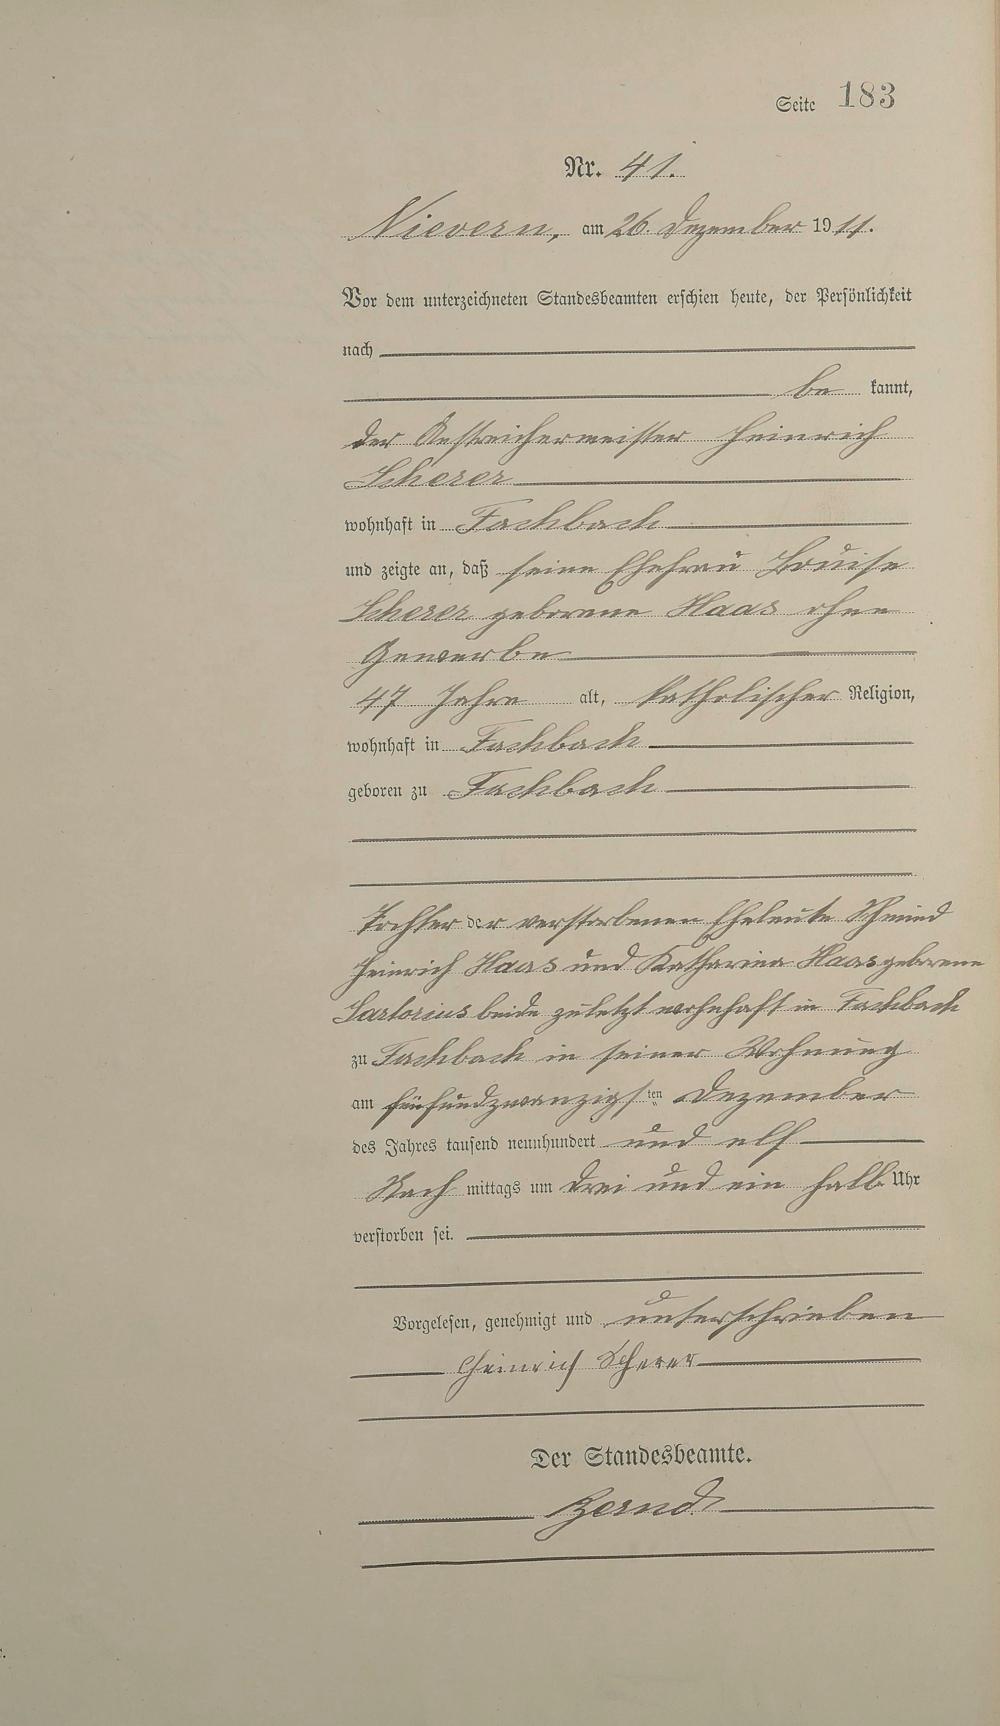 Seite 183
Nr. 41.
Nievern, am 26. Dezember 1911.
Vor dem unterzeichneten Standesbeamten erschien heute, der Persönlichkeit
nach
be kannt,
der Anstreichermeister Heinrich
Scherer
wohnhaft in Fachbach
und zeigte an, daß seine Ehefrau Louise
Scherer geborene Haas ohne
Gewerbe
47 Jahre alt, katholischer Religion,
wohnhaft in Fachbach
geboren zu Fachbach
Tochter der verstorbenen Eheleute Schmied
Heinrich Haas und Katharina Haas geborene
Sartorius beide zuletzt wohnhaft in Fachbach
zu Fachbach in seiner Wohnung
am fünfundzwanzigsten Dezember
des Jahres tausend neunhundert und elf
Nach mittags um drei und ein halb Uhr
verstorben sei.
Vorgelesen, genehmigt und unterschrieben
Heinrich Scherer
Der Standesbeamte.
Berndt